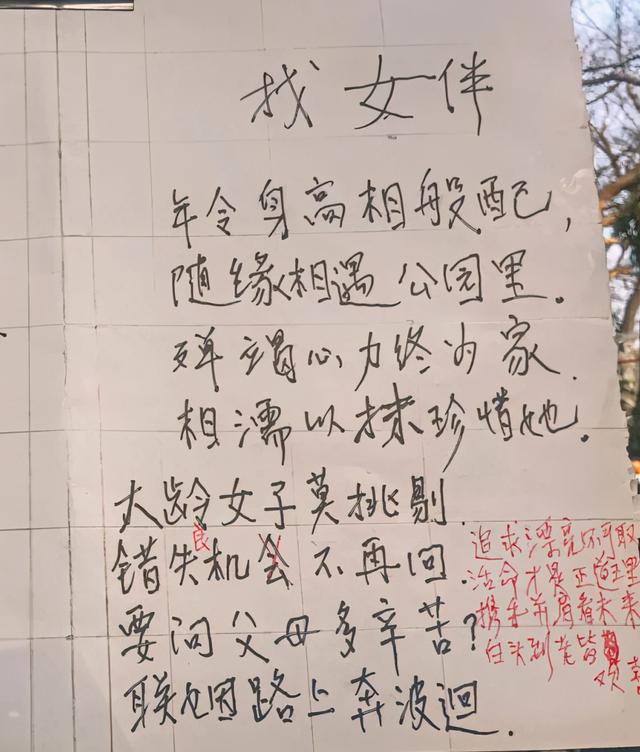 找女伴
年令身高相般配，
随缘相遇公园里．
殚竭心力终为家．
相濡以沫珍惜她．
大龄女子莫挑剔．
错失良机会不再回．
要问父母多辛苦？
联姻路上奔波迴．
追求漂亮不可取
活命才是正道理
携手并肩看未来
白头到老皆欢喜